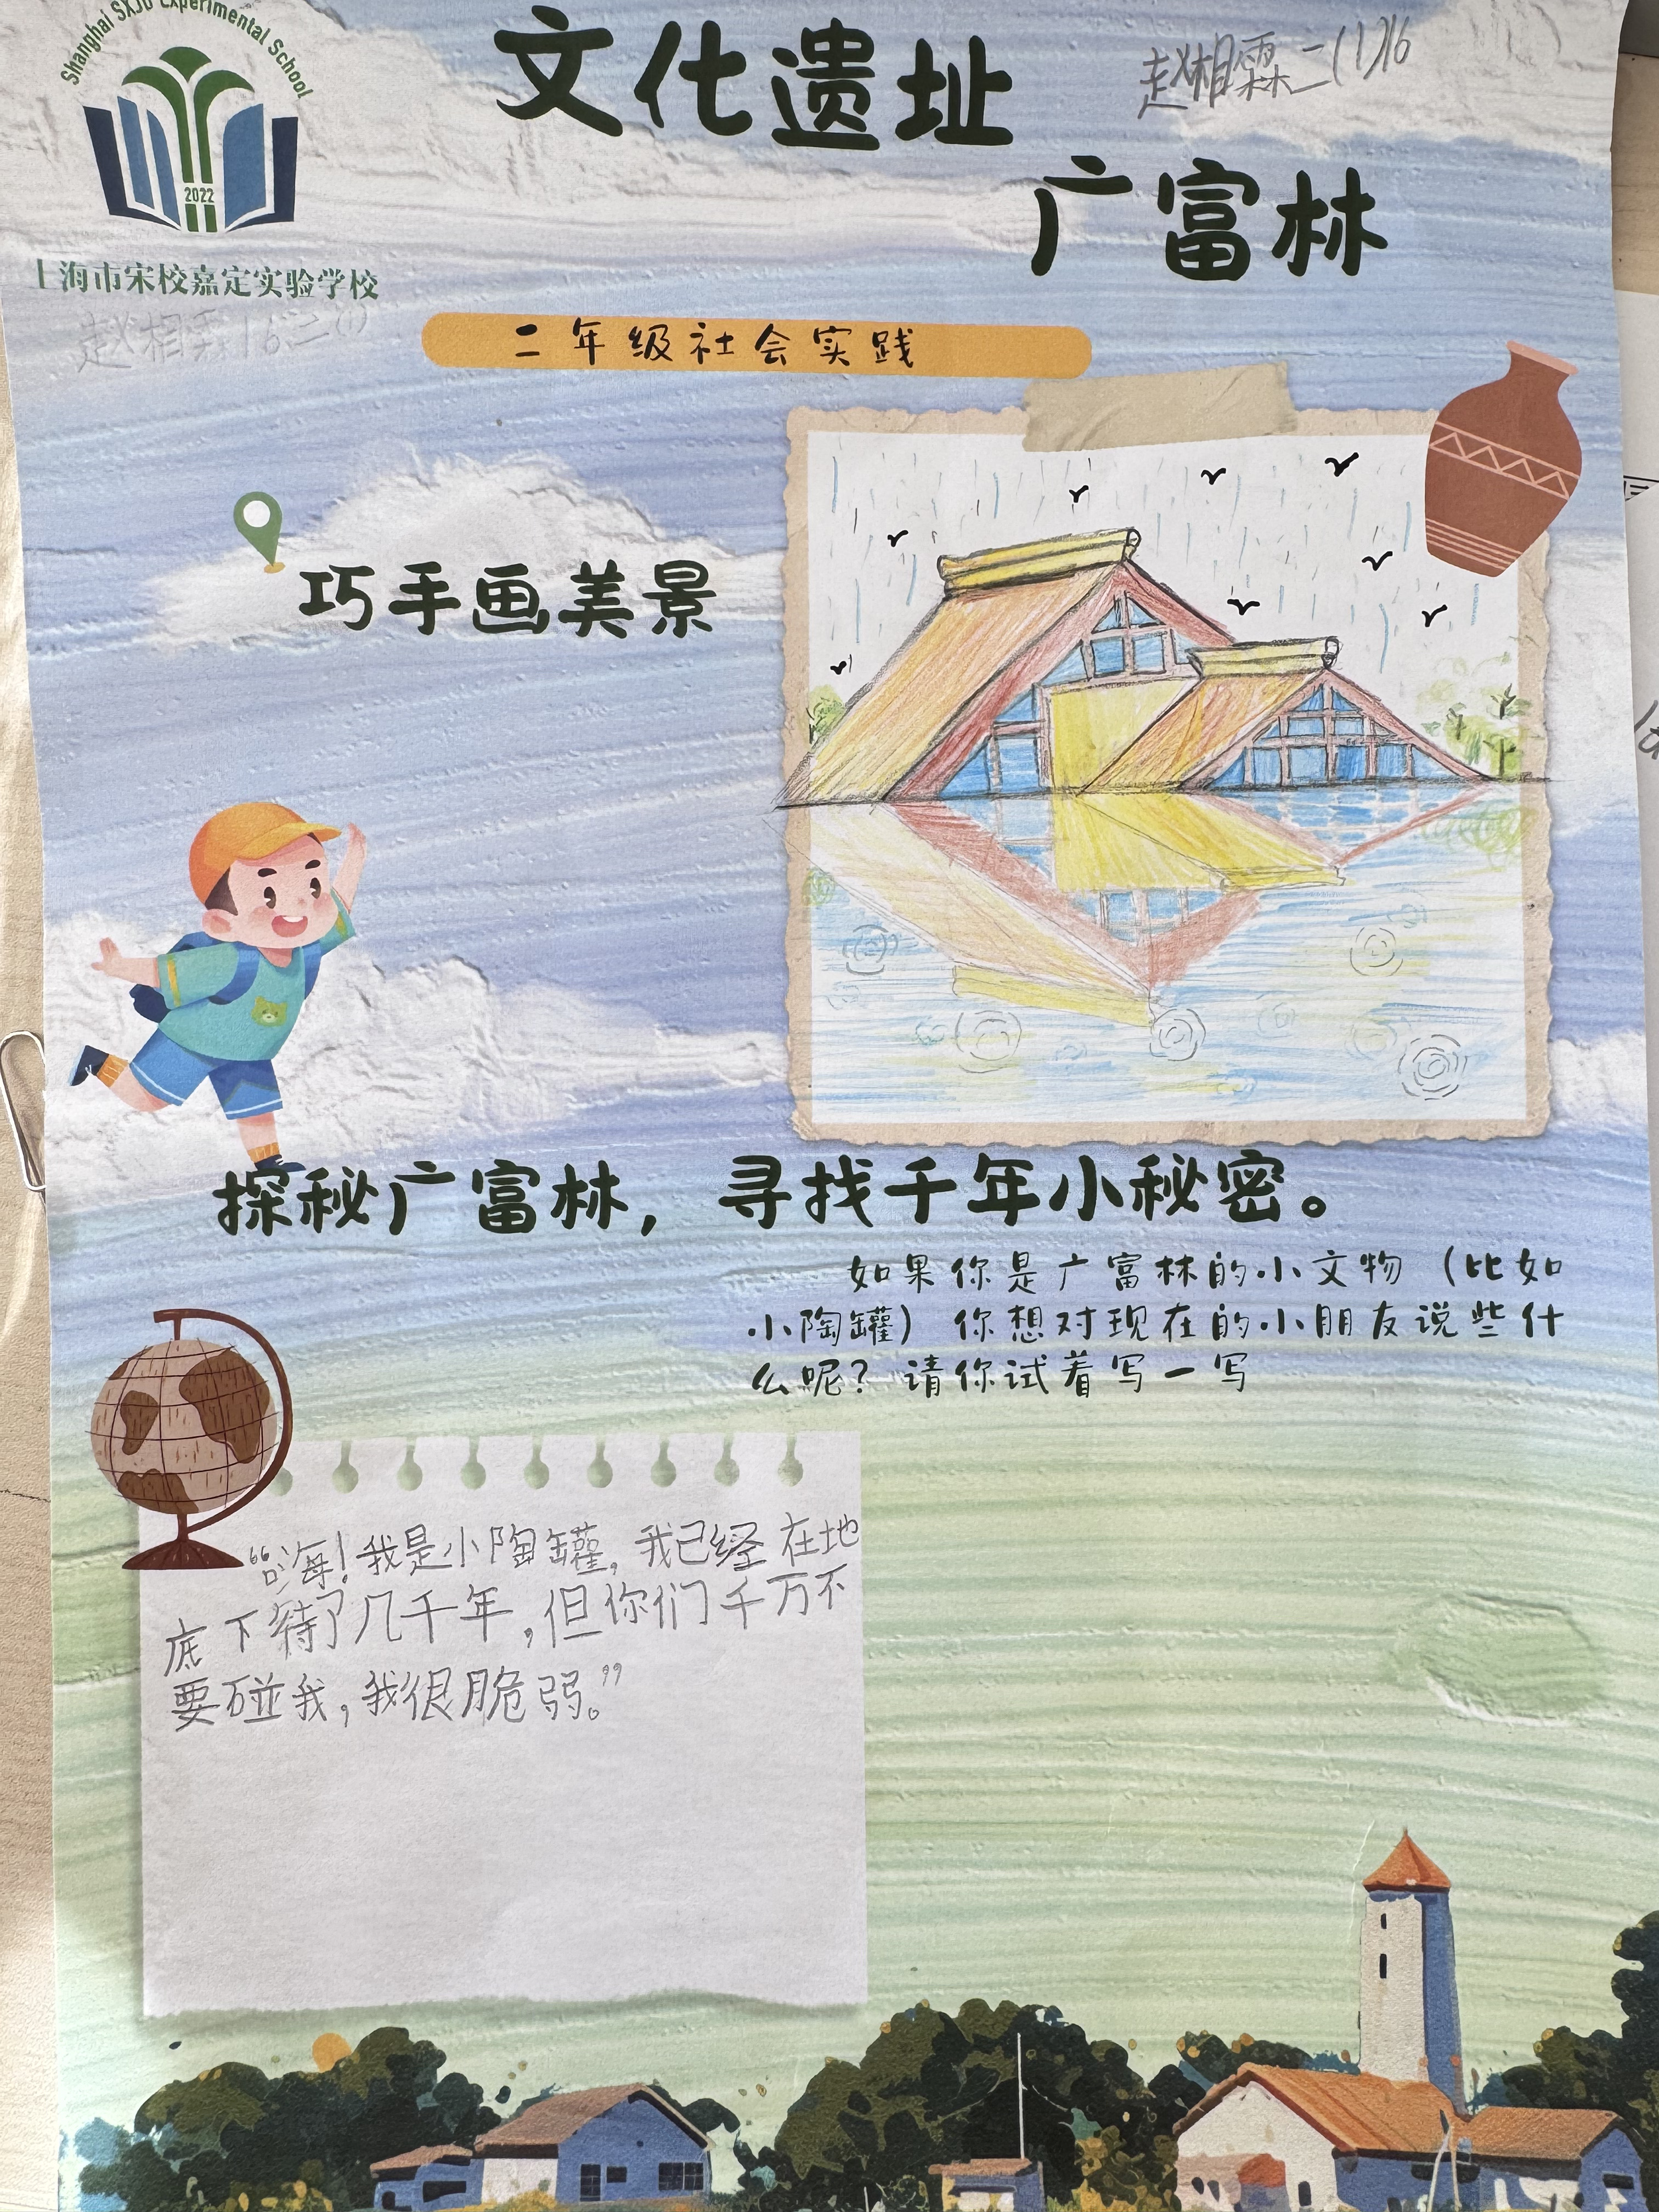 Shanghai SXJD Experimental School
2022
上海市宋校嘉定实验学校
文化遗址
广富林
赵相霖二(1)16
二年级社会实践
巧手画美景
探秘广富林，寻找千年小秘密。
如果你是广富林的小文物（比如
小陶罐）你想对现在的小朋友说些什
么呢？请你试着写一写
“嗨！我是小陶罐，我已经在地
底下待了几千年，但你们千万不
要碰我，我很脆弱。”